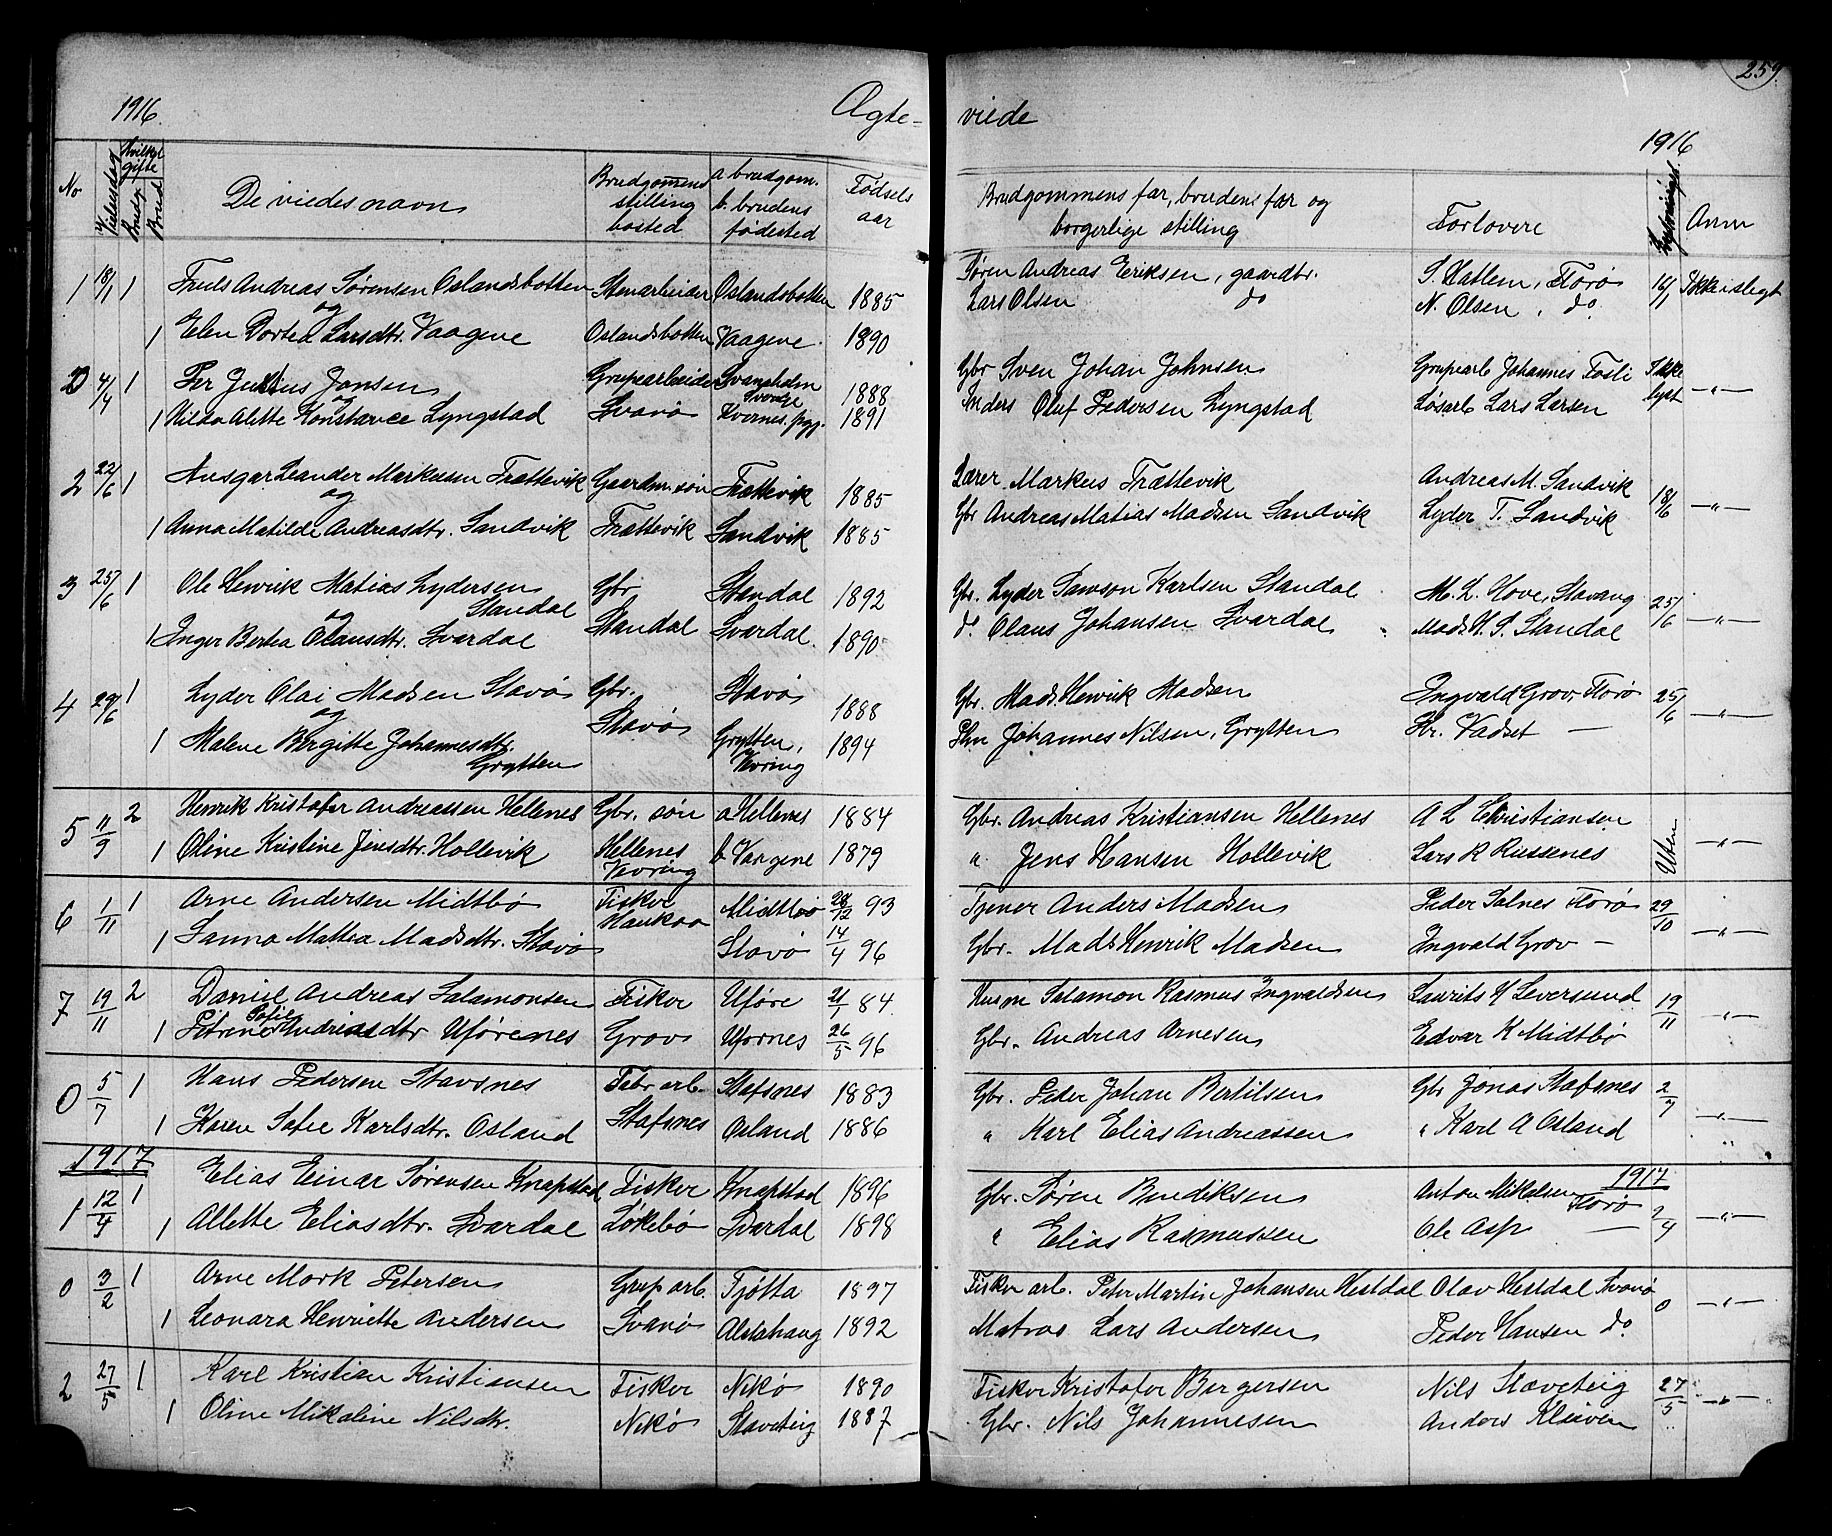 259.
1916. Ægte- viede 1916
No Vielsesdag Hvilket gifte Brudg. Brud De viedes navn Brudgommens stilling bosted a. brudgom. b. brudens fødested Fødsels aar Brudgommens far, brudens far og borgerlige stilling Forlovere Lysningsd. Anm
1 18/1 1 Andreas Sørensen Oslandsbotten Stenarbeider Oslandsbotten 1885 Søren Andreas Eriksen, gaardbr. S. Hatlem, Florø 16/1 Ikke i slegt
og
1 Elen Dortea Larsdtr. Vaagene Oslandsbotten Vaagene 1890 Lars Olsen do N. Olsen, do.
0 4/4 1 Per Julius Jansen Grupearbeider Svansholm Sverige 1888 Gbr Sven Johan Johnsen Grupearb Johannes Fosli Ikke lyst —"—
og
1 Hilda Alette Konstance Lyngstad Svanø Kvernes. pgj. 1891 Anders Oluf Pedersen Lyngstad Løsarb Lars Larsen
2 22/6 1 Ansgar Leander Markussen Trættevik Gaardm. søn Trættevik 1885 Lærer Markus Trættevik Andreas M. Sandvik 18/6 —"—
og
1 Anna Matilde Andreasdtr. Sandvik Trættevik Sandvik 1885 Gbr Andreas Matias Madsen Sandvik Lyder T. Sandvik
3 25/6 1 Ole Henrik Matias Lydersen Standal Gbr Standal 1892 Gbr. Lyder Samson Karlsen Standal M. L. Hove, Stavang 25/6 —"—
og
1 Inger Bertea Olausdtr. Svardal Standal Svardal. 1890 do Olaus Johansen Svardal Mads H. S. Standal
4 29/6 1 Lyder Olai Madsen Stavø Gbr. Stavø 1888 Gbr. Mads Henrik Madsen Ingvald Grov, Florø 25/6 —"—
og
1 Malene Bergitte Johannesdtr. Grytten Stavø Grytten, Vevring 1894 Plm Johannes Nilsen, Grytten Kr. Vadset —
5 11/9 2 Henrik Kristofer Andreassen Hellenes Gbr. søn a Hellenes 1884 Gbr. Andreas Kristiansen Hellenes A L Christiansen Uten —"—
1 Oline Kristine Jensdtr. Hollevik Hellenes Vevring b Vaagene 1879 " Jens Hansen Hollevik Lars R Russenes
6 1/11 1 Arne Andersen Midtbø Fisker Haukaa Midtbø 28/12 93 Tjener Anders Madsen Peder Solnes Florø 29/10 —"—
1 Sanna Mattea Madsdtr. Stavø Stavø 14/4 96 Gbr. Mads Henrik Madsen Ingvald Grov —
7 19/11 2 Daniel Andreas Salamonsen Fisker Uføre 21/1 84. Husm Salamon Rasmus Ingvaldsen Laurits H Leversund 19/11 —"—
1 Petrine Sofie Andreasdtr Uførenes Grov Ufornes 26/5 96 Gbr. Andreas Arnesen Edvar K Midtbø
0 5/7 1 Hans Pedersen Stavsnes Fabr arb. Stafsnes 1883 Gbr. Peder Johan Bertilsen Gbr Jonas Stafsnes 2/7 —"—
1 Karen Sofie Karlsdtr. Osland Stafsnes Osland 1886 " Karl Elias Andreassen " Karl A Osland "
1917 1917
1 12/4 1 Elias Einar Sørensen Knapstad Fisker Knapstad 1896 Gbr. Søren Bendiksen Anton Mikalsen Florø 2/4 —"—
1 Allette Eliasdtr. Svardal Løkebø Svardal 1898 " Elias Rasmussen Ole Asp —
0 3/2 1 Arne Mork Petersen Grup arb. Tjøtta 1897 Fisker arb. Peter Martin Johansen Hestdal Olav Hestdal Svanø 0 —"—
1 Leonara Henriette Andersen Svanø Alstahaug 1892 Matros Lars Andersen Peder Hansen do.
2 27/5 1 Karl Kristian Kristiansen Fisker Nikø 1890 Fisker Kristofer Bergersen Nils Staveteig 27/5 —"—
1 Oline Mikaline Nilsdtr. Nikø Staveteig 1887 Gbr. Nils Johannesen Anders Kleiven